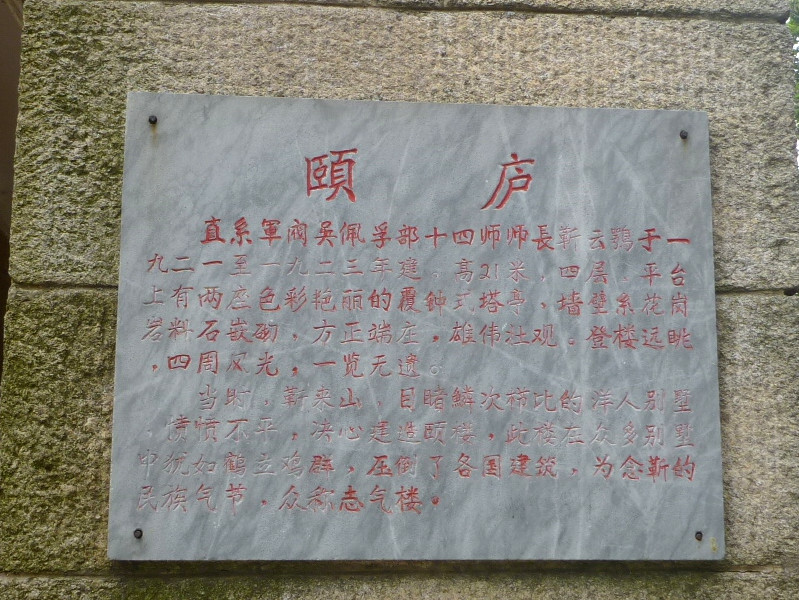 頤庐
直系軍阀吴佩孚部十四师师長靳云鹗于一
九二一至一九二三年建。高21米，四层、平台
上有两座色彩艳丽的覆钟式塔亭，墙壁系花岗
岩料石嵌砌，方正端庄，雄伟壮观。登楼远眺
，四周风光，一览无遗。
当时，靳来山，目睹鳞次栉比的洋人别墅
，愤愤不平，决心建造颐楼，此楼在众多别墅
中犹如鹤立鸡群，压倒了各国建筑，为念靳的
民族气节，众称志气楼。